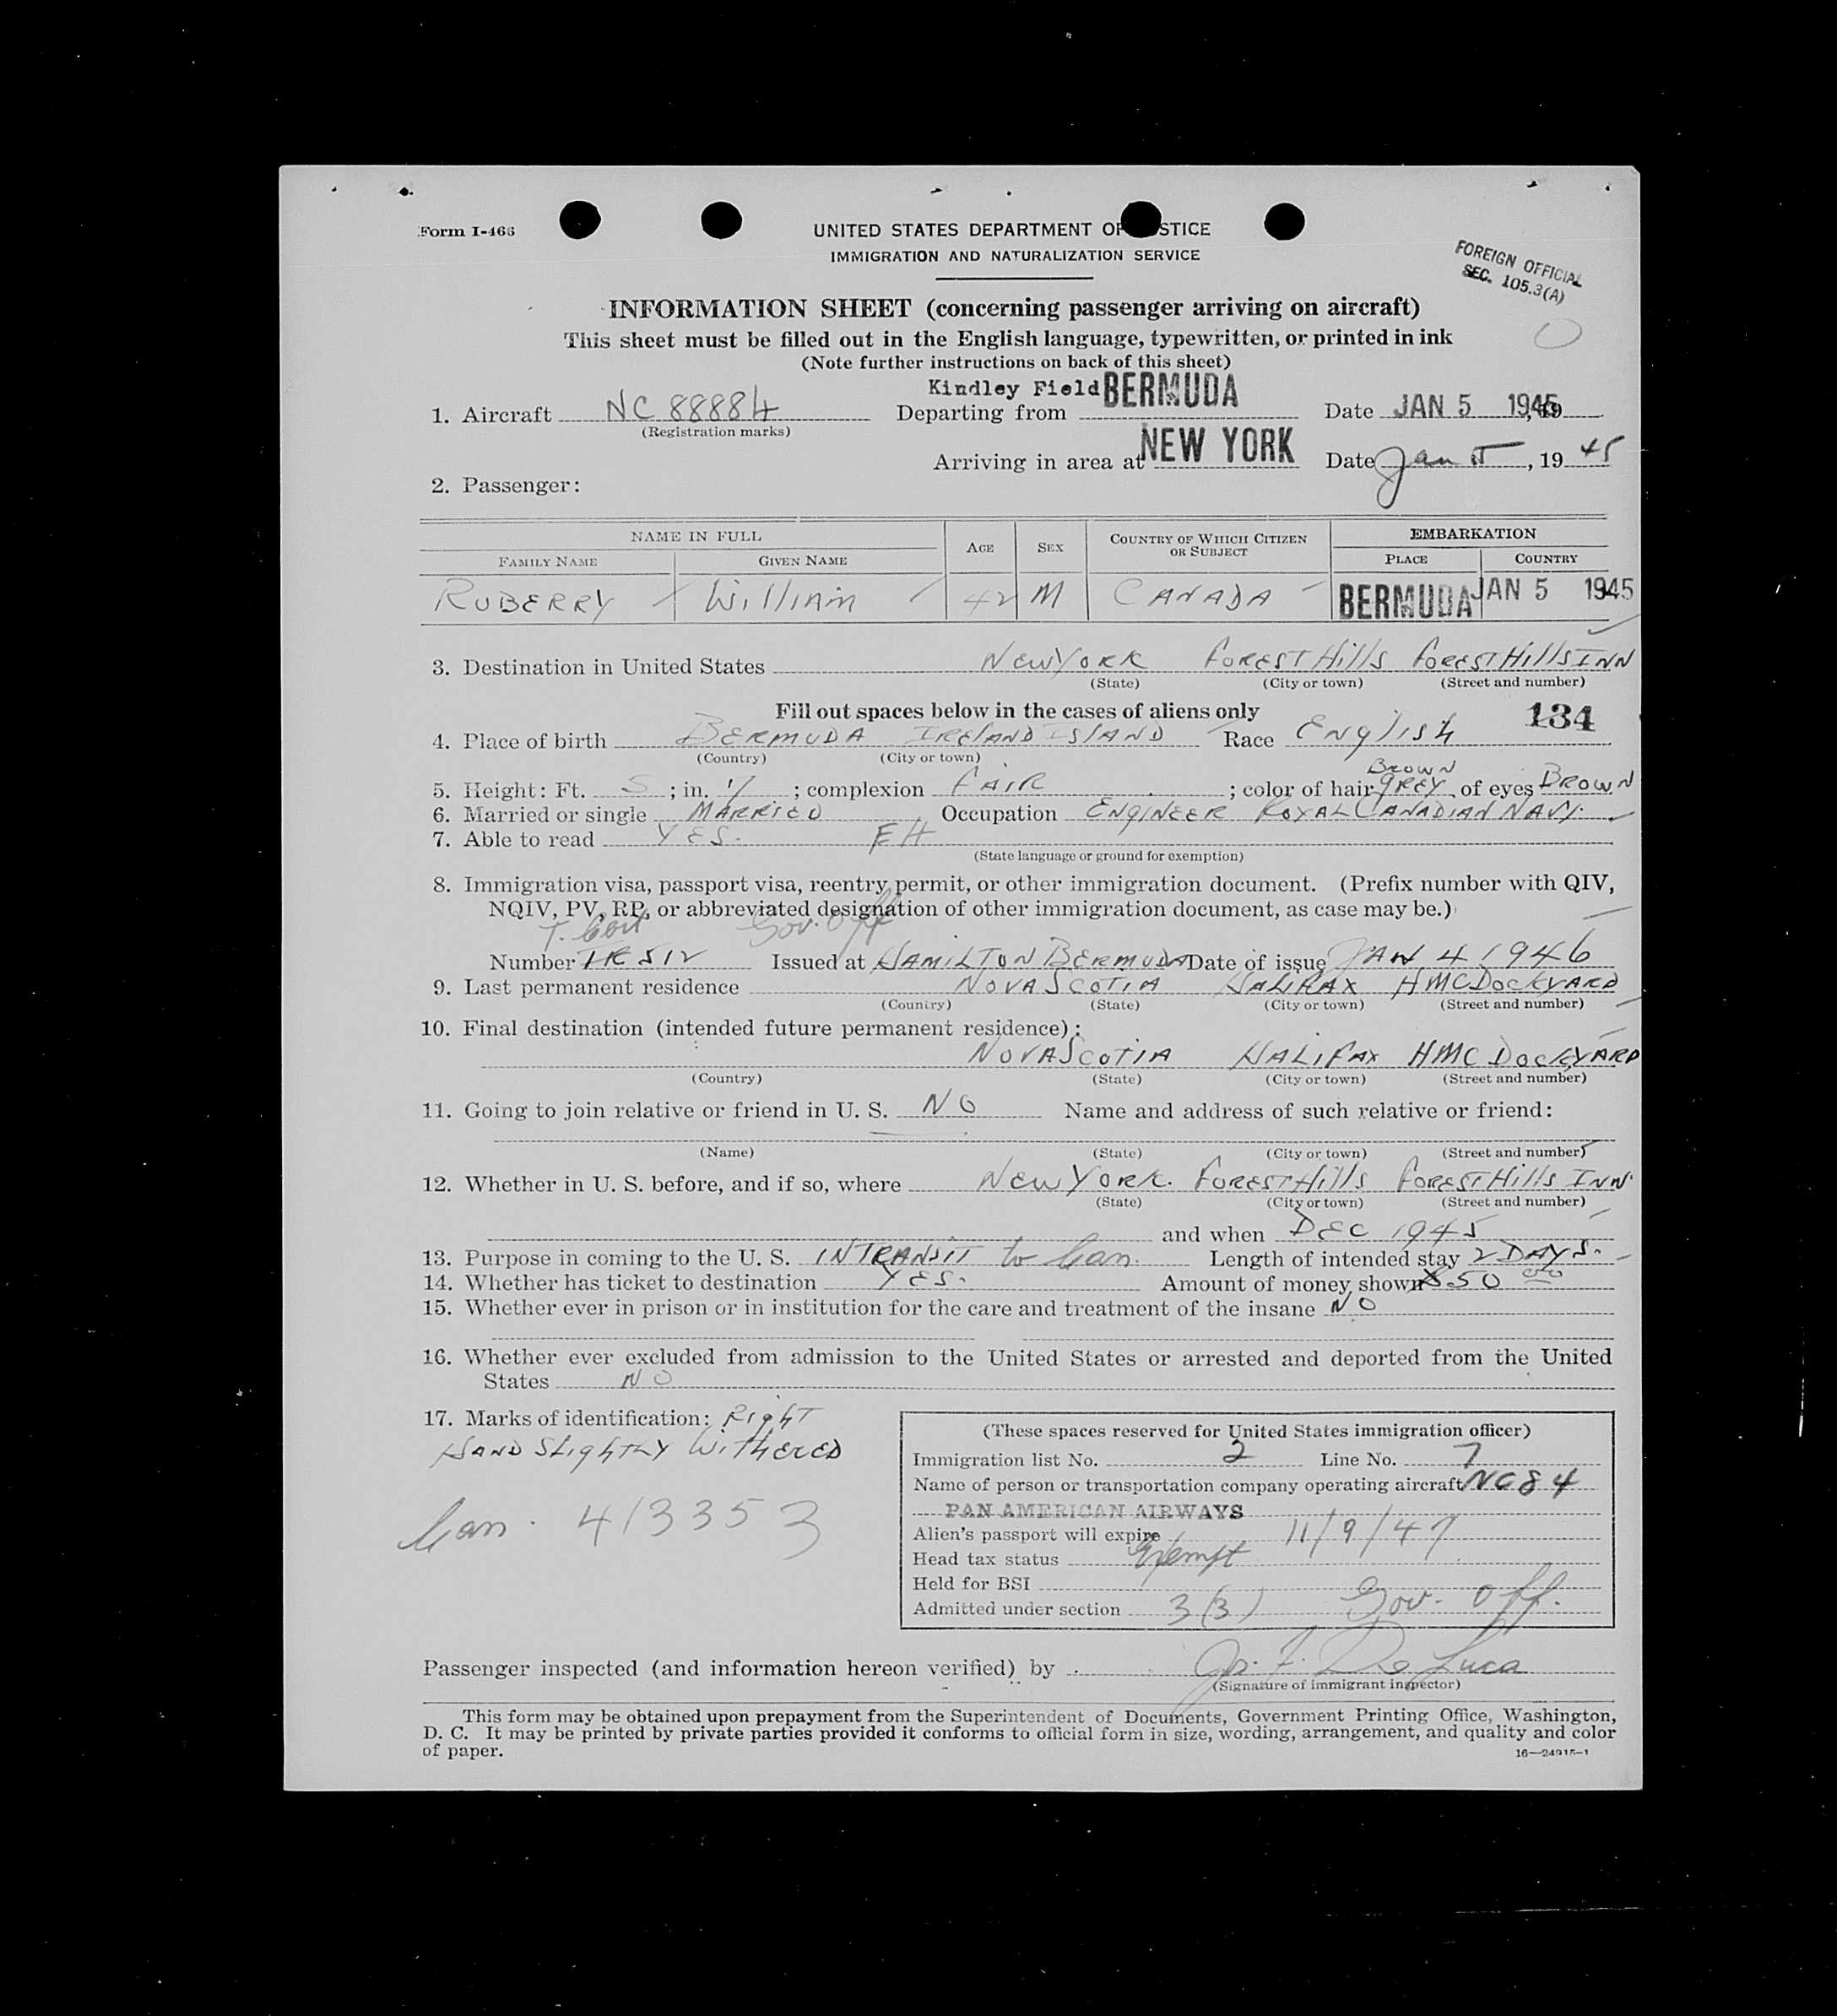 Form I-466
UNITED STATES DEPARTMENT OF STICE
IMMIGRATION AND NATURALIZATION SERVICE
FOREIGN OFFICIAL
SEC. 105.3(A)
INFORMATION SHEET (concerning passenger arriving on aircraft)
This sheet must be filled out in the English language, typewritten, or printed in ink
(Note further instructions on back of this sheet)
1. Aircraft NC 88884 Departing from Kindley Field BERMUDA Date JAN 5 1945, 19
(Registration marks)
Arriving in area at NEW YORK Date Jan 5, 19 45
2. Passenger:
NAME IN FULL AGE SEX COUNTRY OF WHICH CITIZEN OR SUBJECT EMBARKATION
FAMILY NAME GIVEN NAME PLACE COUNTRY
RUBERRY William 42 M CANADA BERMUDA JAN 5 1945
3. Destination in United States NEW YORK FOREST Hills FOREST Hills INN
(State) (City or town) (Street and number)
Fill out spaces below in the cases of aliens only
134
4. Place of birth BERMUDA IRELAND ISLAND Race English
(Country) (City or town)
Brown
5. Height: Ft. 5; in. 7; complexion FAIR; color of hair grey, of eyes BROWN
6. Married or single MARRIED Occupation ENGINEER ROYAL CANADIAN NAVY.
7. Able to read YES. EH
(State language or ground for exemption)
8. Immigration visa, passport visa, reentry permit, or other immigration document. (Prefix number with QIV,
NQIV, PV, RP, or abbreviated designation of other immigration document, as case may be.)
T. Cert Gov. Off
Number 512 Issued at HAMILTON BERMUDA Date of issue JAN 4 1946
9. Last permanent residence NOVA SCOTIA HALIFAX HMC DOCKYARD
(Country) (State) (City or town) (Street and number)
10. Final destination (intended future permanent residence):
NOVA SCOTIA HALIFAX HMC DOCKYARD
(Country) (State) (City or town) (Street and number)
11. Going to join relative or friend in U. S. NO Name and address of such relative or friend:
(Name) (State) (City or town) (Street and number)
12. Whether in U. S. before, and if so, where NEW YORK. FOREST Hills FOREST Hills INN.
(State) (City or town) (Street and number)
and when DEC 1945
13. Purpose in coming to the U. S. INTRANSIT to Can. Length of intended stay 2 DAYS.
14. Whether has ticket to destination YES. Amount of money shown $50 00
15. Whether ever in prison or in institution for the care and treatment of the insane NO
16. Whether ever excluded from admission to the United States or arrested and deported from the United
States NO
17. Marks of identification: Right
HAND SLIGHTLY WITHERED
Can. 413353
(These spaces reserved for United States immigration officer)
Immigration list No. 2 Line No. 7
Name of person or transportation company operating aircraft NC84
PAN AMERICAN AIRWAYS
Alien's passport will expire 11/9/47
Head tax status Exempt
Held for BSI
Admitted under section 3(3) Gov. Off.
Passenger inspected (and information hereon verified) by De Luca
(Signature of immigrant inspector)
This form may be obtained upon prepayment from the Superintendent of Documents, Government Printing Office, Washington,
D. C. It may be printed by private parties provided it conforms to official form in size, wording, arrangement, and quality and color
of paper.
16—24915-1